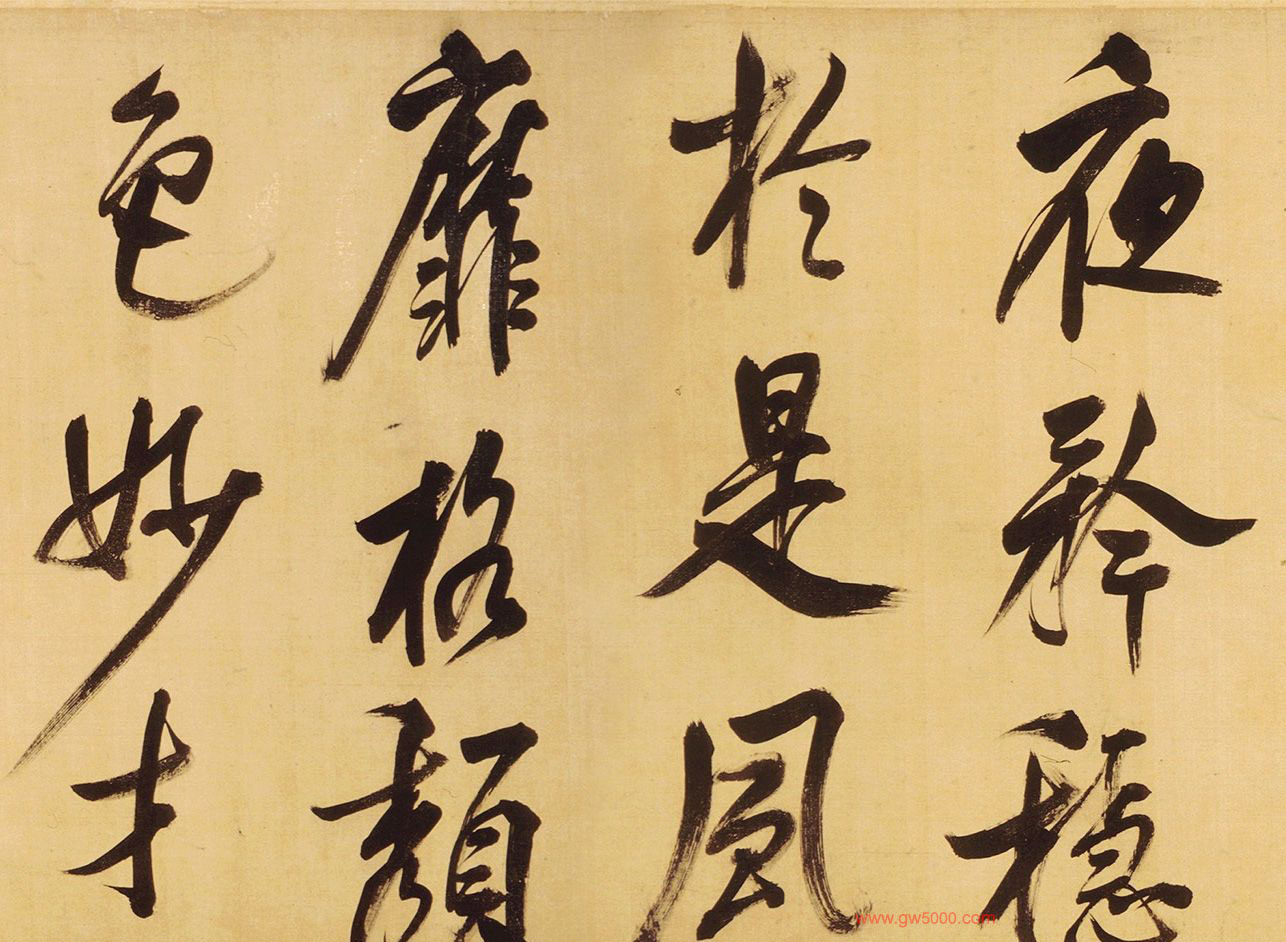 夜矜穩
於是風
靡格頹
色妙才
www.gw5000.com